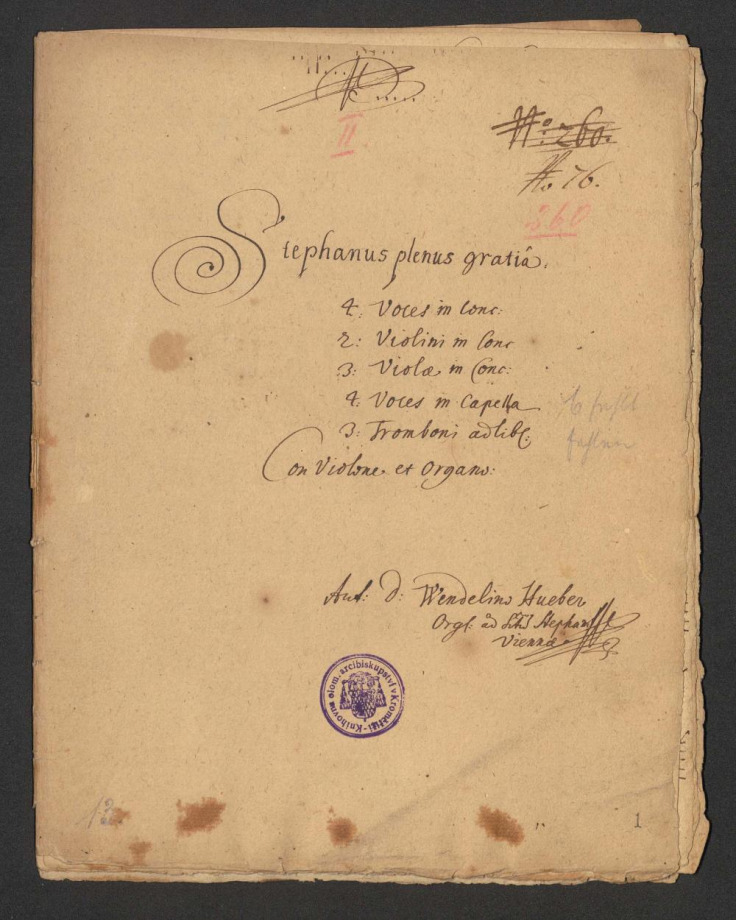 II
No: 260.
No 76.
360
Stephanus plenus gratiâ.
4: Voces in Conc:
2: Violini in Conc
3: Violæ in Conc:
4: Voces in Capella
3: Tromboni ad lib:
Con Violone et Organo:
Aut: D: Wendelino Hueber
Orgl: ad Stephan
Viennæ
Knihovna olom. arcibiskupství v Kroměříži
13
1